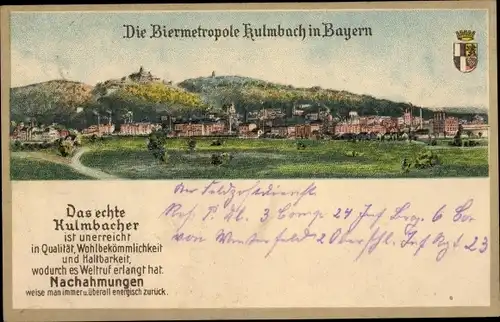 Die Biermetropole Kulmbach in Bayern
Das echte
Kulmbacher
ist unerreicht
in Qualität, Wohlbekömmlichkeit
und Haltbarkeit,
wodurch es Weltruf erlangt hat.
Nachahmungen
weise man immer u. überall energisch zurück.
3 Comp 24 Inf Brg 6
von Winterfeld 2 Oberschl. Inf Rgt 23